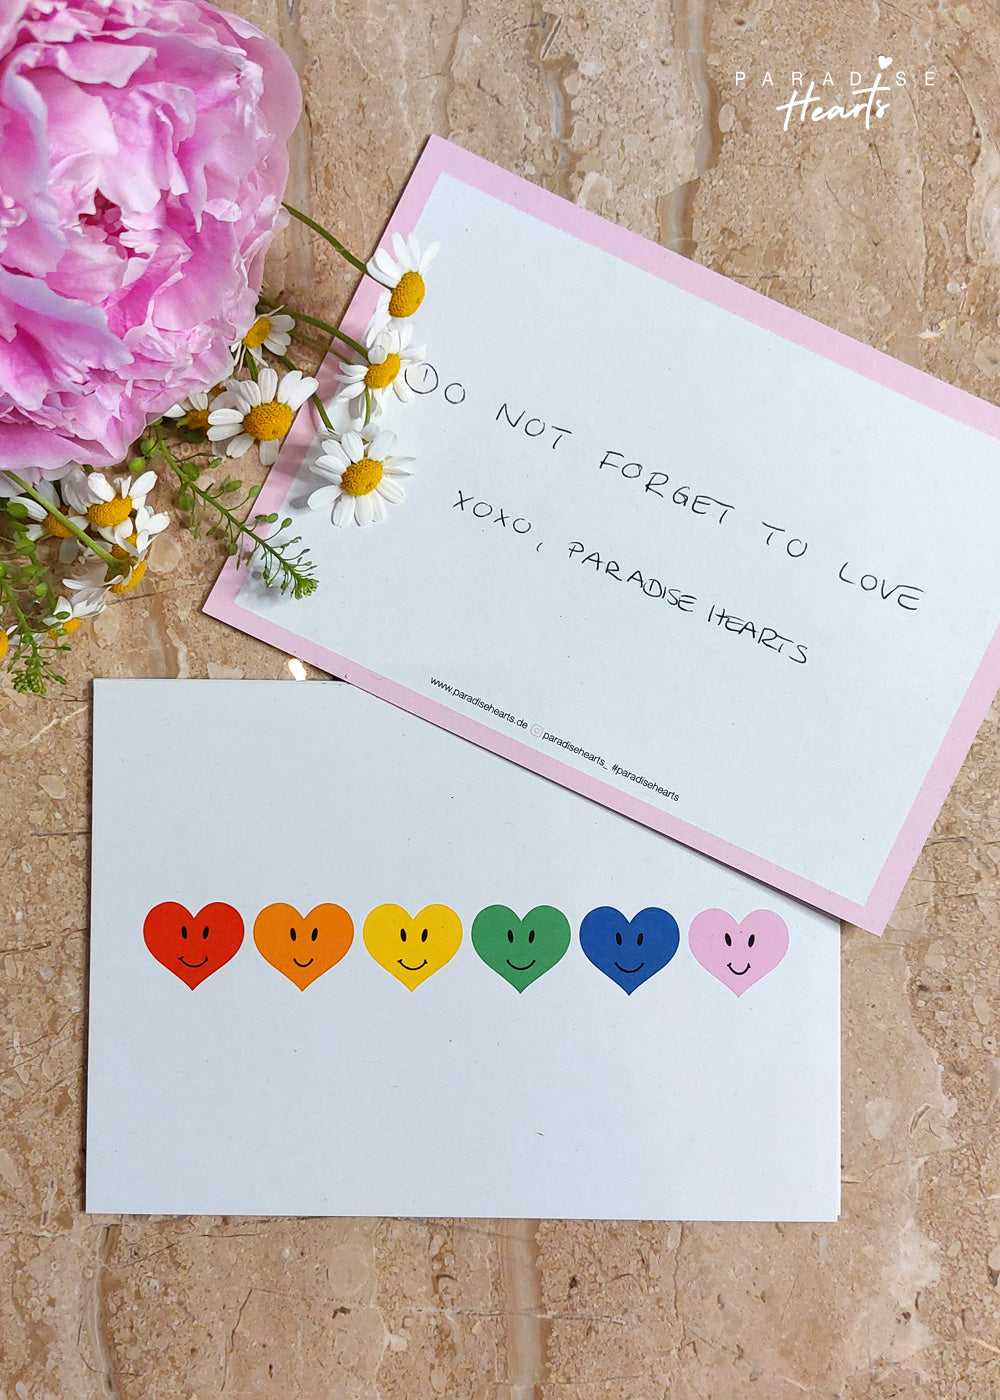 PARADISE
Hearts
DO NOT FORGET TO LOVE
XOXO, PARADISE HEARTS
www.paradisehearts.de paradisehearts_ #paradisehearts